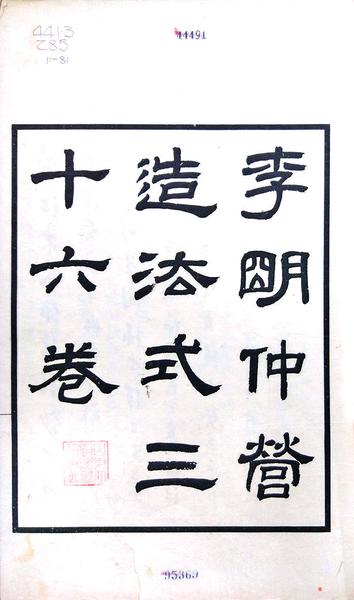 441·3
Z85
1:-8:
44491
李明仲營
造法式三
十六卷
95369